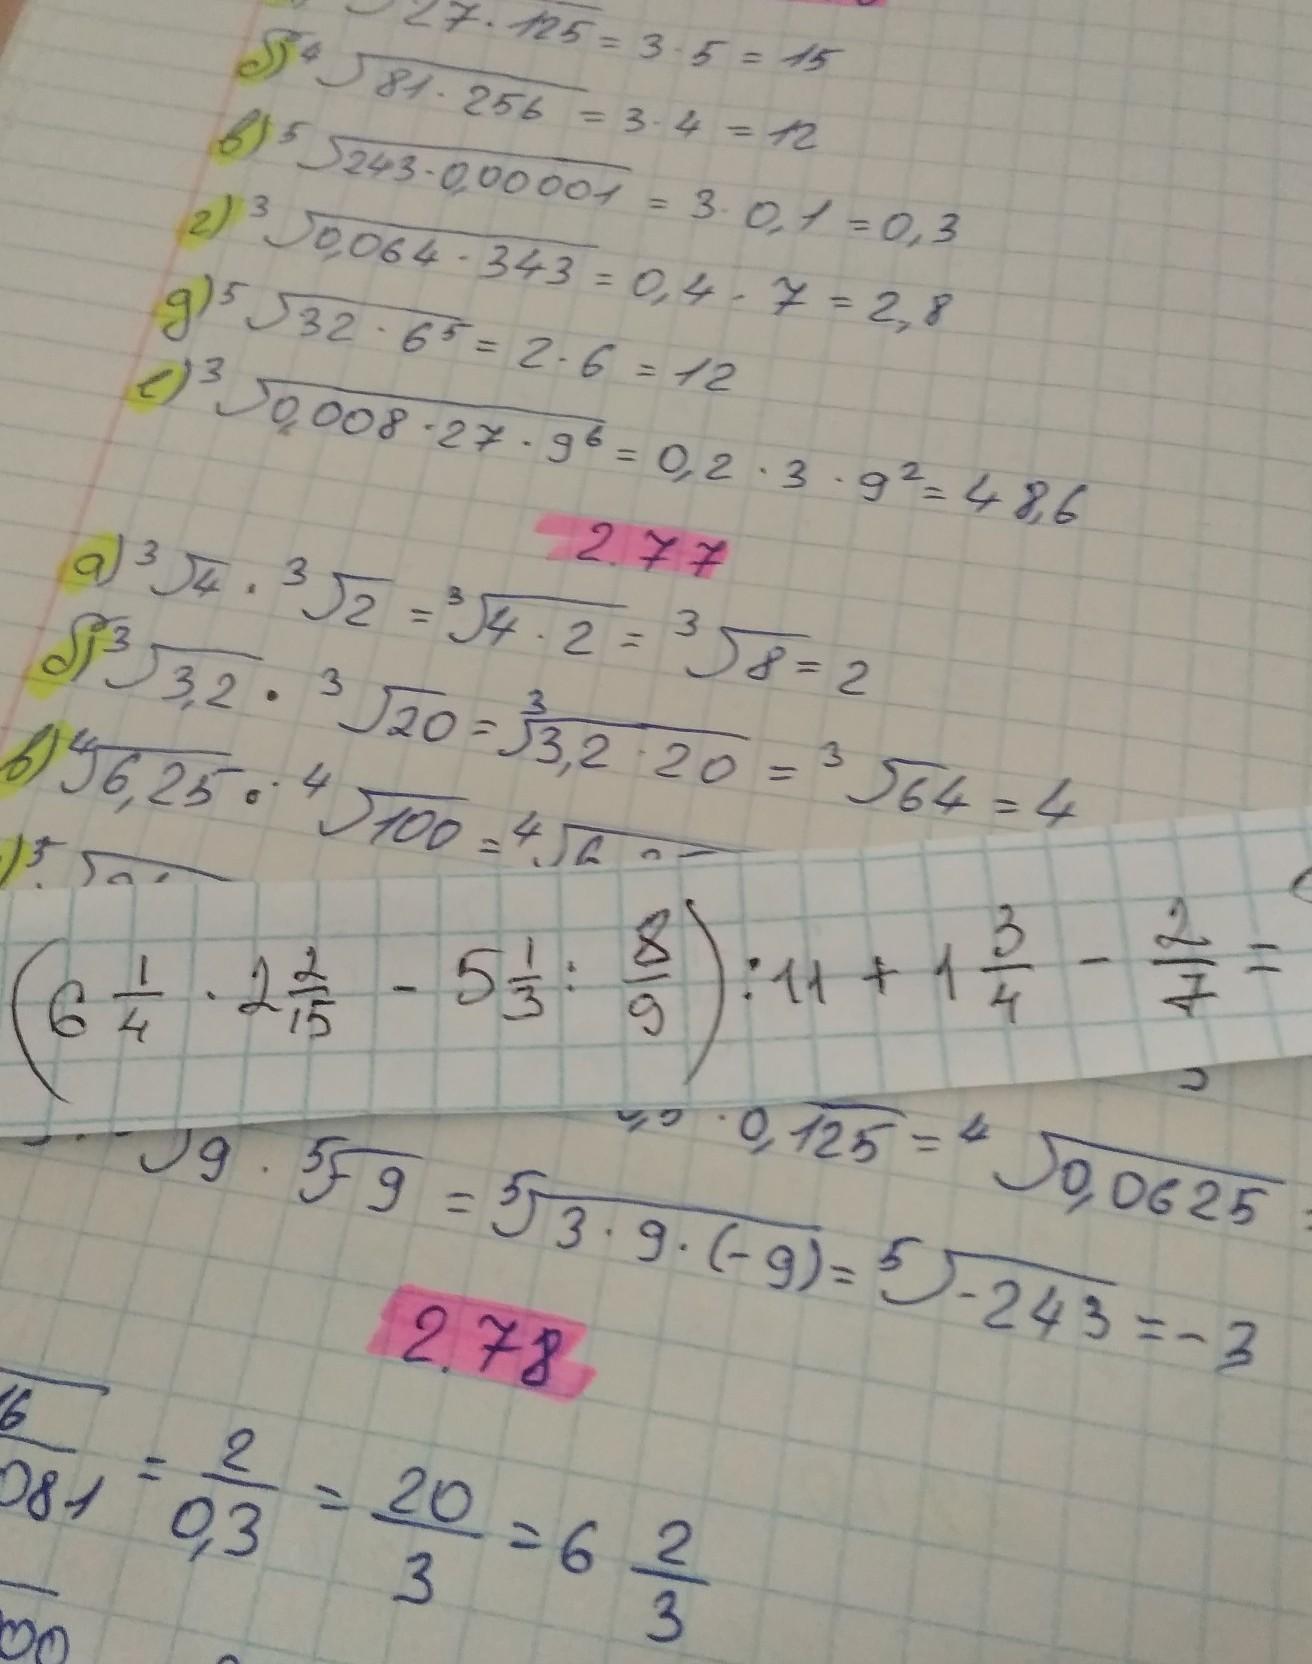 27 · 125 = 3 · 5 = 15
б) ⁴√81 · 256 = 3 · 4 = 12
в) ⁵√243 · 0,00001 = 3 · 0,1 = 0,3
г) ³√0,064 · 343 = 0,4 · 7 = 2,8
д) ⁵√32 · 6⁵ = 2 · 6 = 12
е) ³√0,008 · 27 · 9⁶ = 0,2 · 3 · 9² = 48,6
2.77
а) ³√4 · ³√2 = ³√4 · 2 = ³√8 = 2
б) ³√3,2 · ³√20 = ³√3,2 · 20 = ³√64 = 4
в) ⁴√6,25 · ⁴√100 = ⁴√
(6 1/4 · 2 2/15 - 5 1/3 : 8/9) : 11 + 1 3/4 - 2/7 =
· 0,125 = ⁴√0,0625
√9 · ⁵√-9 = ⁵√3 · 9 · (-9) = ⁵√-243 = -3
2.78
= 2/0,3 = 20/3 = 6 2/3